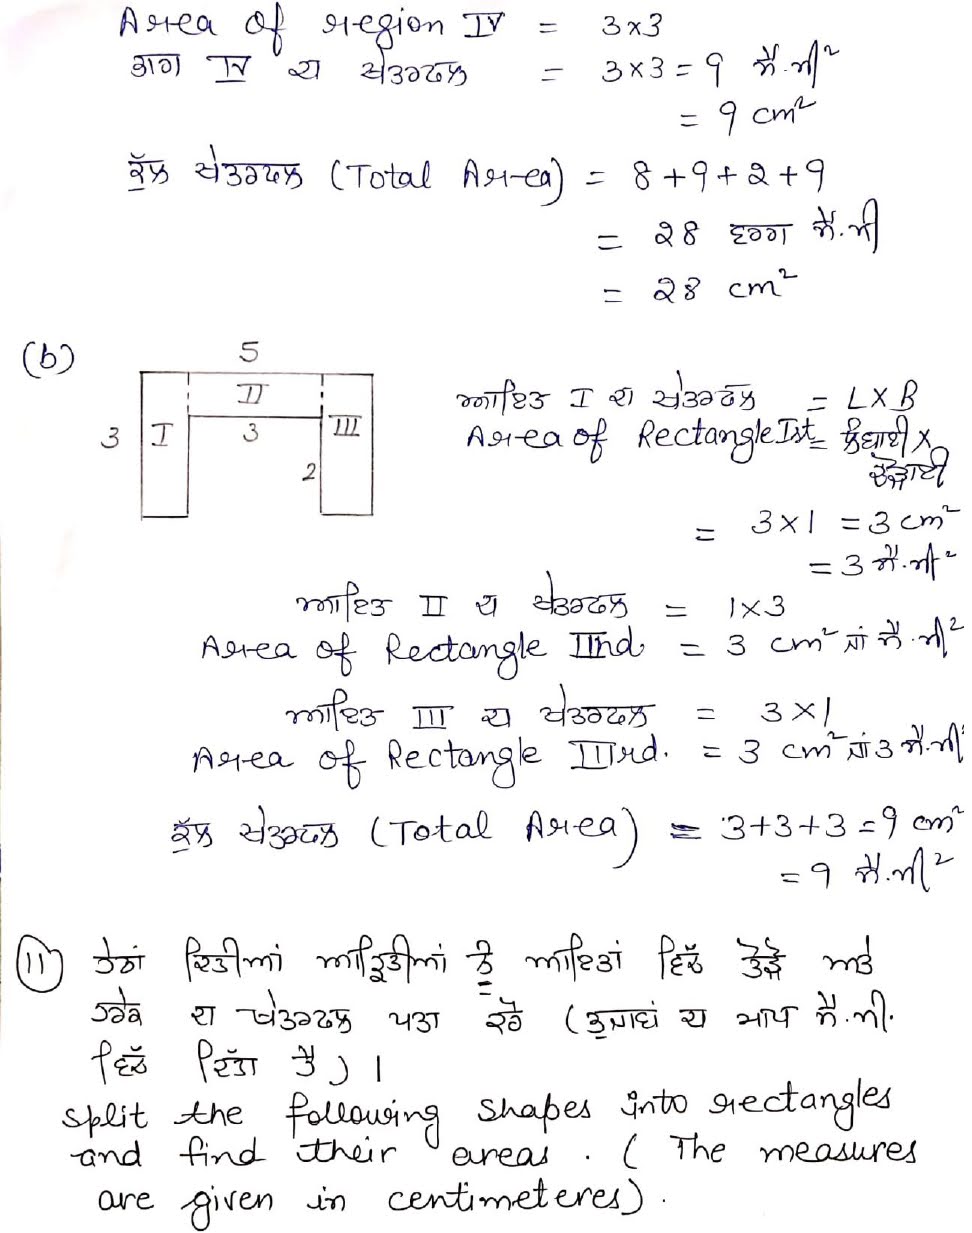 Area of region IV = 3×3
ਭਾਗ IV ਦਾ ਖੇਤਰਫਲ = 3×3 = 9 ਸੈਂ.ਮੀ²
= 9 cm²
ਕੁੱਲ ਖੇਤਰਫਲ (Total Area) = 8+9+2+9
= 28 ਵਰਗ ਸੈਂ.ਮੀ
= 28 cm²
(b)
5
II
3 I 3 III
2
ਆਇਤ I ਦਾ ਖੇਤਰਫਲ = L×B
Area of Rectangle Ist = ਲੰਬਾਈ ×
ਚੌੜਾਈ
= 3×1 = 3 cm²
= 3 ਸੈਂ.ਮੀ²
ਆਇਤ II ਦਾ ਖੇਤਰਫਲ = 1×3
Area of Rectangle IInd = 3 cm² ਜਾਂ ਸੈਂ.ਮੀ²
ਆਇਤ III ਦਾ ਖੇਤਰਫਲ = 3×1
Area of Rectangle IIIrd. = 3 cm² ਜਾਂ 3 ਸੈਂ.ਮੀ²
ਕੁੱਲ ਖੇਤਰਫਲ (Total Area) = 3+3+3 = 9 cm²
= 9 ਸੈਂ.ਮੀ²
(11) ਹੇਠਾਂ ਦਿਤੀਆਂ ਆਕ੍ਰਿਤੀਆਂ ਨੂੰ ਆਇਤਾਂ ਵਿੱਚ ਤੋੜੋ ਅਤੇ
ਹਰੇਕ ਦਾ ਖੇਤਰਫਲ ਪਤਾ ਕਰੋ (ਭੁਜਾਵਾਂ ਦਾ ਮਾਪ ਸੈਂ.ਮੀ.
ਵਿੱਚ ਦਿੱਤਾ ਹੈ)।
split the following shapes into rectangles
and find their areas. (The measures
are given in centimeteres).